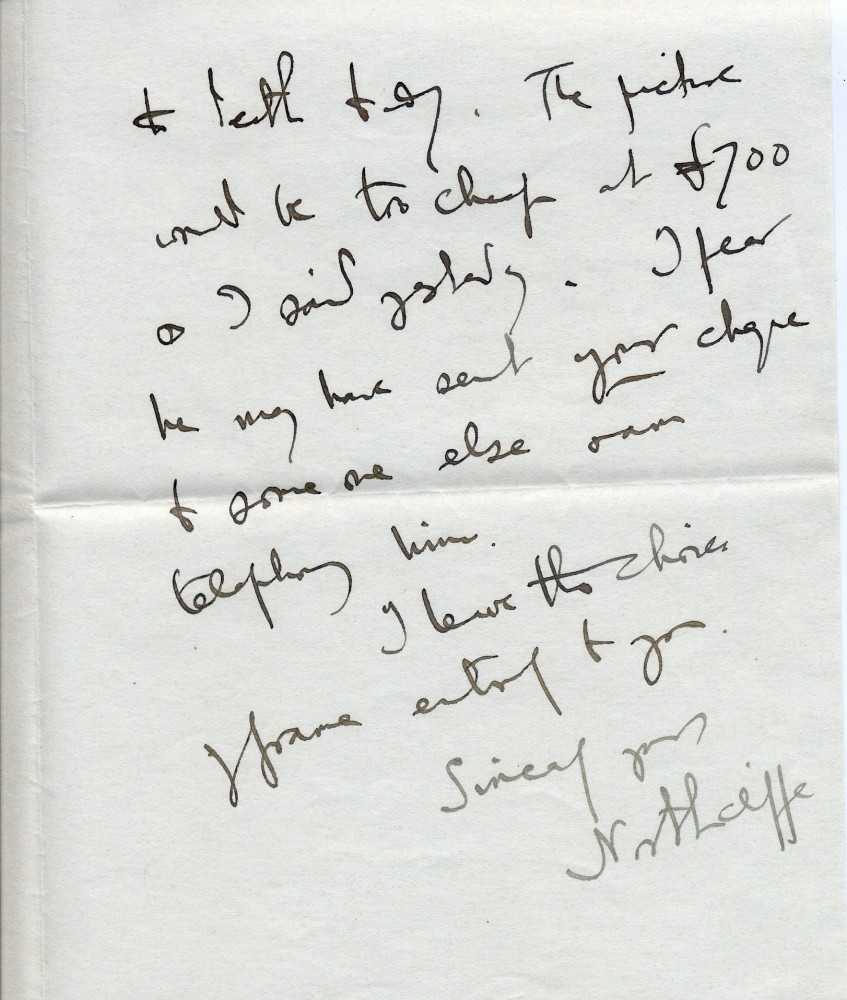 to Leith today. The picture
would be too cheap at £700
as I said yesterday. I fear
he may have sent your cheque
to some one else
telephoning him.
I leave the choice
of frame entirely to you.
Sincerely yours
Northcliffe